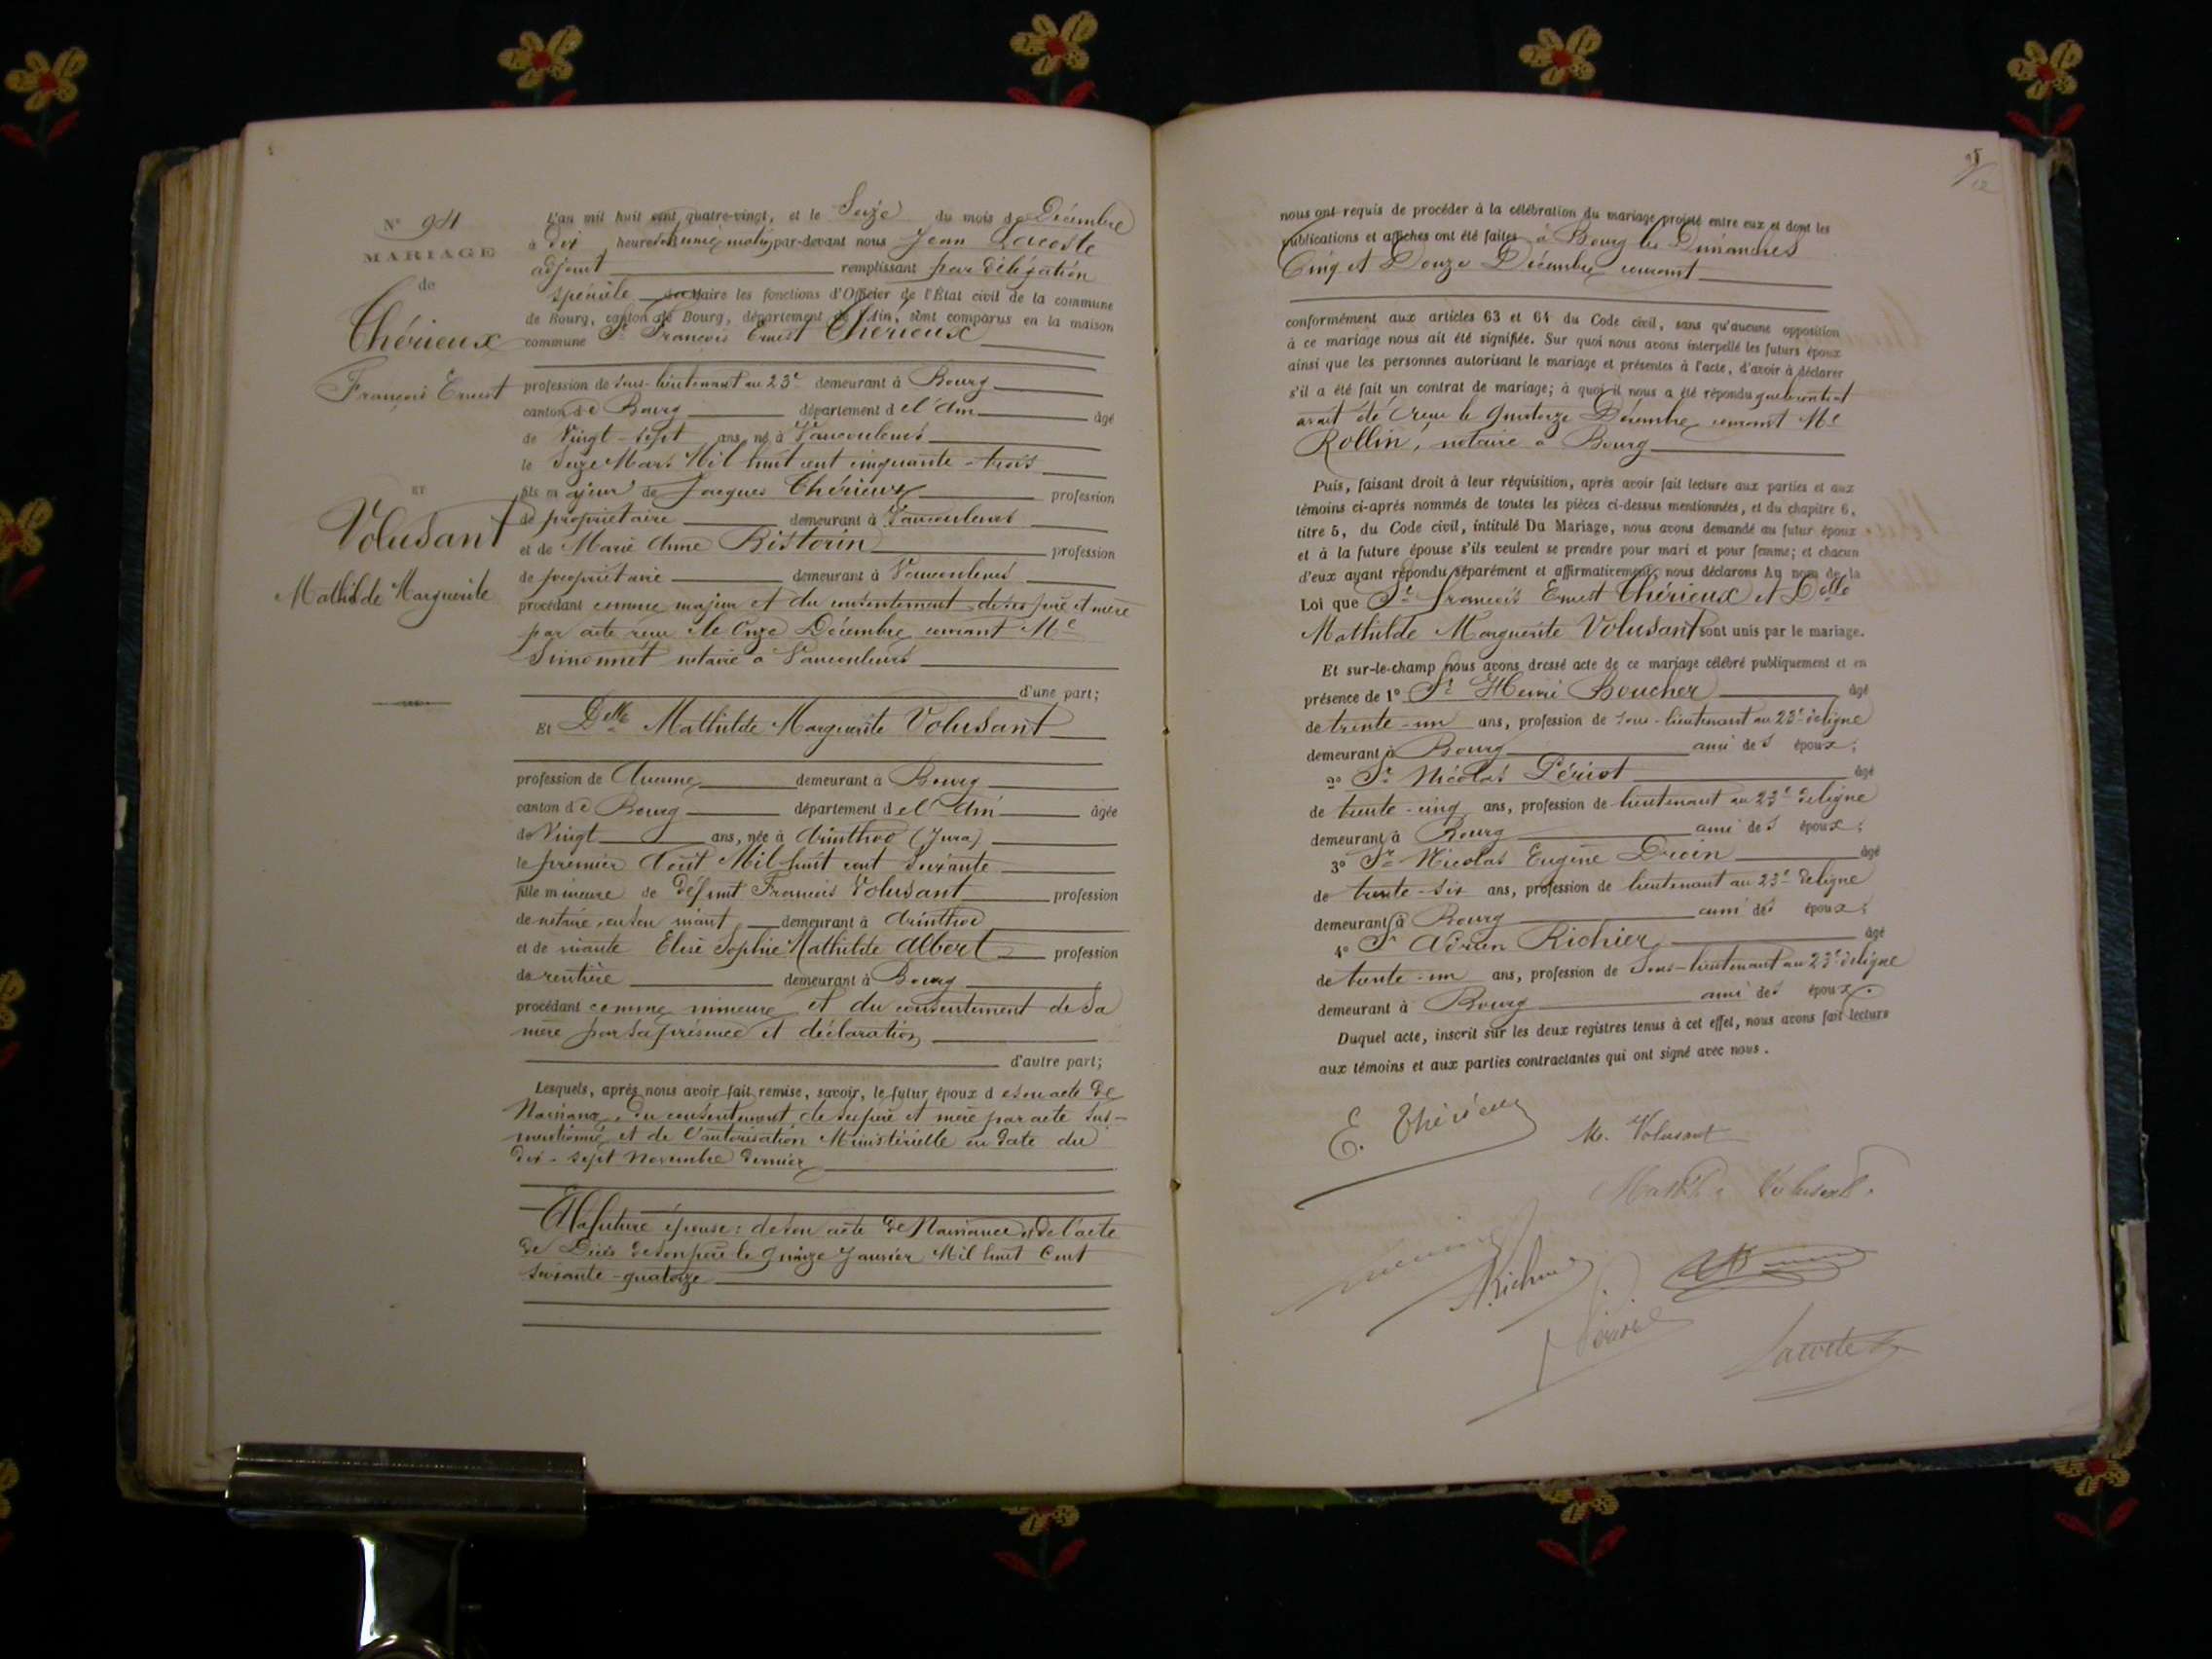 N° 94
MARIAGE
de
Thérieux
François Ernest
ET
Volusant
Mathilde Marguerite
L'an mil huit cent quatre-vingt, et le Seize du mois de Décembre
à dix heures du matin, par-devant nous Jean Lacoste
adjoint remplissant par délégation
spéciale du Maire les fonctions d'Officier de l'État civil de la commune
de Bourg, canton de Bourg, département de l'Ain, sont comparus en la maison
commune Sr François Ernest Thérieux
profession de sous-lieutenant au 23e demeurant à Bourg
canton de Bourg département de l'Ain âgé
de Vingt-sept ans, né à Vaucouleurs
le Seize Mars Mil huit cent cinquante-trois
fils majeur de Jacques Thérieux profession
de propriétaire demeurant à Vaucouleurs
et de Marie Anne Ristorin profession
de propriétaire demeurant à Vaucouleurs
procédant comme majeur et du consentement de ses père et mère
par acte reçu le Onze Décembre courant Me
Simonnet notaire à Vaucouleurs
d'une part;
Et Delle Mathilde Marguerite Volusant
profession de Aucune demeurant à Bourg
canton de Bourg département de l'Ain âgée
de Vingt ans, née à Arinthod (Jura)
le premier Août Mil huit cent Soixante
fille mineure de défunt François Volusant profession
de notaire, en son vivant demeurant à Arinthod
et de vivante Elise Sophie Mathilde Albert profession
de rentière demeurant à Bourg
procédant comme mineure et du consentement de sa
mère par sa présence et déclaration
d'autre part;
Lesquels, après nous avoir fait remise, savoir, le futur époux de son acte de
Naissance, du consentement de ses père et mère par acte sus-
mentionné et de l'autorisation Ministérielle en date du
dix-sept Novembre dernier
Et la future épouse: de son acte de Naissance et de l'acte
de Décès de son père le quinze Janvier Mil huit Cent
soixante-quatorze
nous ont requis de procéder à la célébration du mariage projeté entre eux et dont les
publications et affiches ont été faites à Bourg les Dimanches
Cinq et Douze Décembre courant
conformément aux articles 63 et 64 du Code civil, sans qu'aucune opposition
à ce mariage nous ait été signifiée. Sur quoi nous avons interpellé les futurs époux
ainsi que les personnes autorisant le mariage et présentes à l'acte, d'avoir à déclarer
s'il a été fait un contrat de mariage; à quoi il nous a été répondu que contrat
avait été reçu le quatorze Décembre courant Me
Rollin, notaire à Bourg
Puis, faisant droit à leur réquisition, après avoir fait lecture aux parties et aux
témoins ci-après nommés de toutes les pièces ci-dessus mentionnées, et du chapitre 6,
titre 5, du Code civil, intitulé Du Mariage, nous avons demandé au futur époux
et à la future épouse s'ils veulent se prendre pour mari et pour femme; et chacun
d'eux ayant répondu séparément et affirmativement, nous déclarons Au nom de la
Loi que Sr François Ernest Thérieux et Delle
Mathilde Marguerite Volusant sont unis par le mariage.
Et sur-le-champ nous avons dressé acte de ce mariage célébré publiquement et en
présence de 1° Sr Henri Boucher âgé
de trente-un ans, profession de sous-lieutenant au 23e de ligne
demeurant à Bourg ami des époux;
2° Sr Nicolas Périot âgé
de trente-cinq ans, profession de lieutenant au 23e de ligne
demeurant à Bourg ami des époux;
3° Sr Nicolas Eugène Droin âgé
de trente-six ans, profession de lieutenant au 23e de ligne
demeurant à Bourg ami des époux;
4° Sr Adrien Richier âgé
de trente-un ans, profession de Sous-lieutenant au 23e de ligne
demeurant à Bourg ami des époux.
Duquel acte, inscrit sur les deux registres tenus à cet effet, nous avons fait lecture
aux témoins et aux parties contractantes qui ont signé avec nous.
E. Thérieux
M. Volusant
Volusant
A. Richier
Lacoste